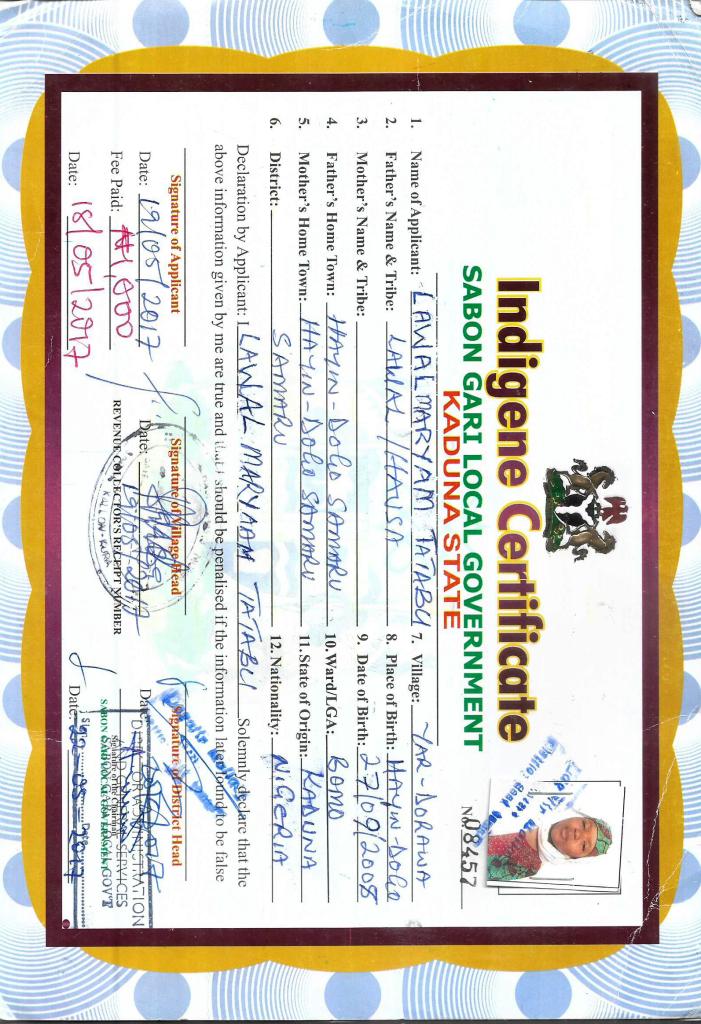 Indigene Certificate
SABON GARI LOCAL GOVERNMENT
KADUNA STATE
No 08457
1. Name of Applicant: LAWAL MARYAM TATABU 7. Village: YAR-DORAWA
2. Father's Name & Tribe: LAWAL / HAUSA 8. Place of Birth: HAYIN-DOGO
3. Mother's Name & Tribe: 9. Date of Birth: 27/09/2008
4. Father's Home Town: HAYIN-DOGO SAMARU 10. Ward/LGA: BOMO
5. Mother's Home Town: HAYIN-DOGO SAMARU 11. State of Origin: KADUNA
6. District: SAMARU 12. Nationality: NIGERIA
Declaration by Applicant: I LAWAL MARYAM TATABU Solemnly declare that the
above information given by me are true and that I should be penalised if the information later found to be false
Signature of Applicant
Date: 19/05/2017
Fee Paid: ₦1,000
Date: 18/05/2017
Signature of Village Head
Date: 19/05/2017
REVENUE COLLECTOR'S RECEIPT NUMBER
Signature of District Head
Date:
SERVICES
SABON GARI LOCAL GOV'T
Date: 05 2017